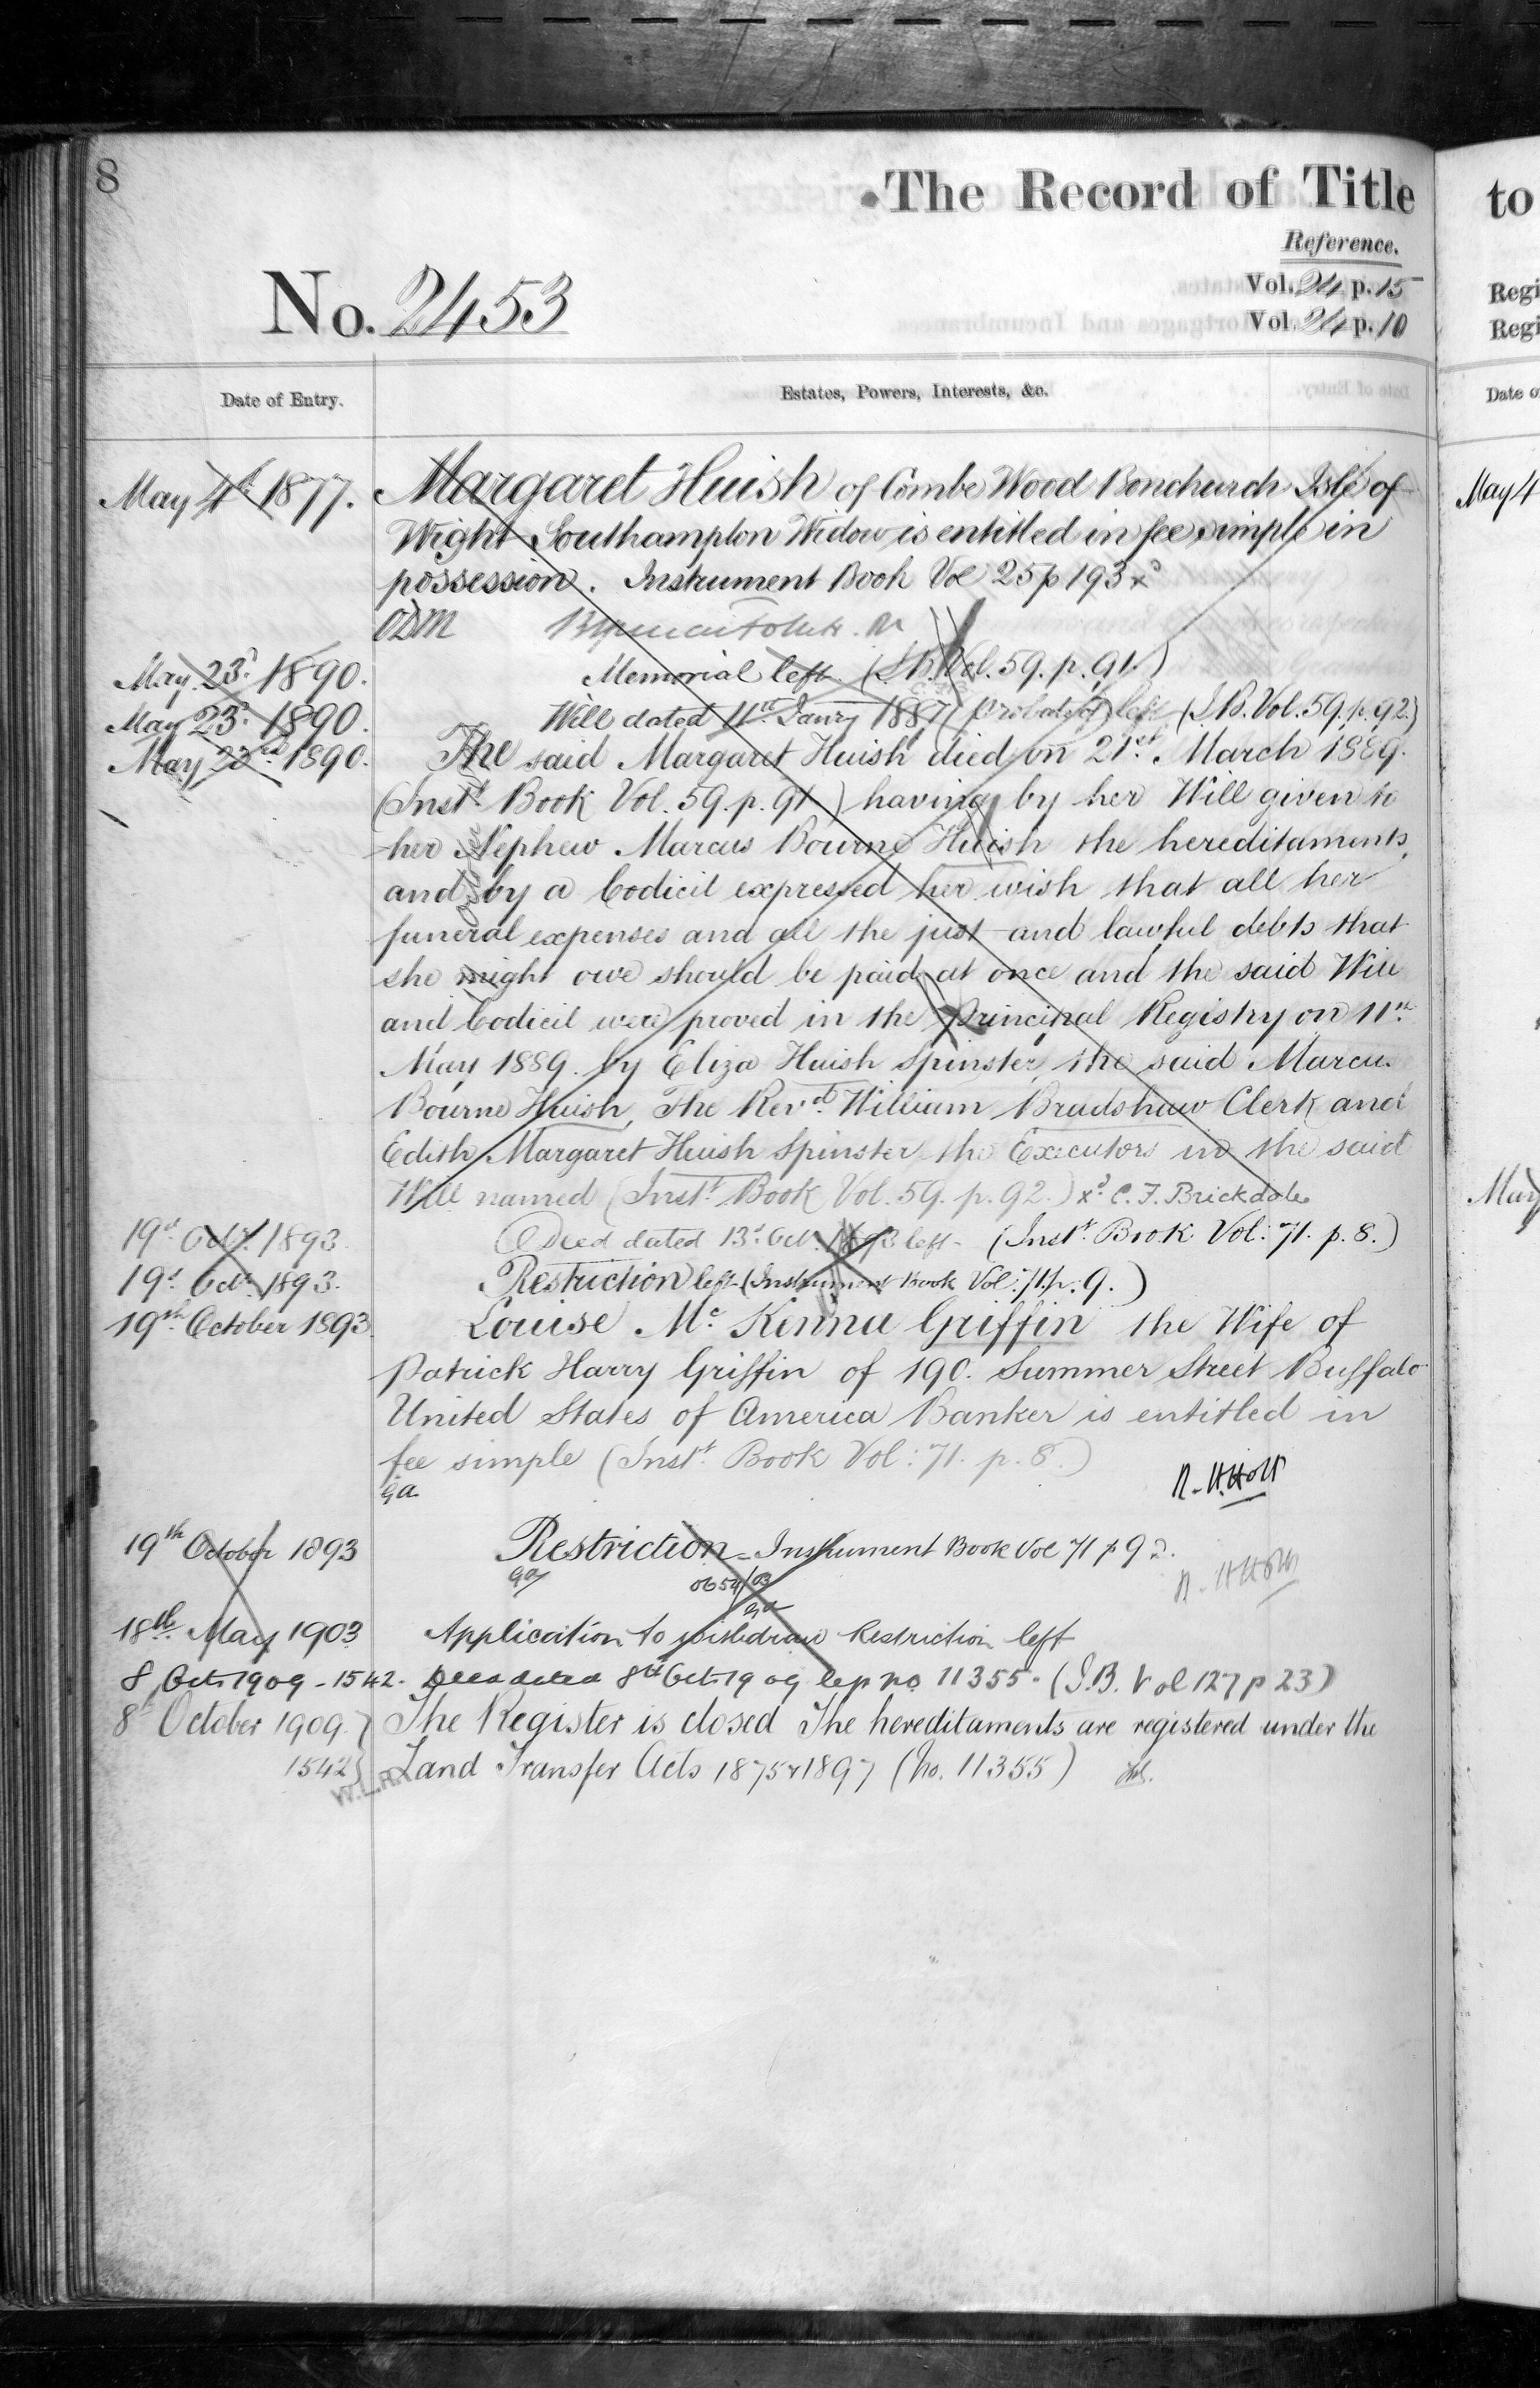 8
The Record of Title
Reference.
No. 2453
Vol. 24 p. 15
Vol. 24 p. 10
Date of Entry.
Estates, Powers, Interests, &c.
May 4th 1877. Margaret Huish of Combe Wood Bonchurch Isle of
Wight Southampton Widow is entitled in fee simple in
possession. Instrument Book Vol 25 p 193 xd
ODM
May 23d 1890. Memorial left (I.B. Vol. 59. p. 91.)
May 23d 1890. Will dated 11th Janry 1887 (Probate of) left (I.B. Vol. 59. p. 92.)
May 23rd 1890. The said Margaret Huish died on 21st March 1889.
(Instt Book Vol. 59. p. 91.) having by her Will given to
her Nephew Marcus Bourne Huish the hereditaments,
and by a Codicil expressed her wish that all her
funeral expenses and all the just and lawful debts that
she might owe should be paid at once and the said Will
and Codicil were proved in the Principal Registry on 11th
May 1889. by Eliza Huish Spinster, the said Marcus
Bourne Huish, The Revd William Bradshaw Clerk and
Edith Margaret Huish Spinster the Executors in the said
Will named (Instt Book Vol. 59. p. 92.) xd C. F. Brickdale
19th Octr 1893. Deed dated 13th Oct. 1893 left (Instt Book Vol: 71. p. 8.)
19th Octr 1893. Restriction left (Instrument Book Vol: 71. p. 9.)
19th October 1893. Louise Mc Kinnu Griffin the Wife of
Patrick Harry Griffin of 190. Summer Street Buffalo
United States of America Banker is entitled in
fee simple (Instt Book Vol: 71. p. 8.)
ga
R. H. Holt
19th October 1893 Restriction - Instrument Book Vol 71 p 9
ga
R. H. Holt
18th May 1903 Application to withdraw Restriction left
8 Oct. 1909 - 1542. Deed dated 8th Oct. 1909 leg no 11355. (I.B. Vol 127 p 23)
8th October 1909. The Register is closed The hereditaments are registered under the
1542 Land Transfer Acts 1875 & 1897 (No. 11355)
W.L.R.
to
Regi
Regi
Date o
May 4
May